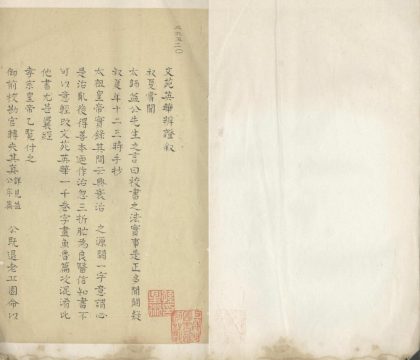 文苑英華辨證敘
叔夏嘗聞
太師益公先生之言曰校書之法實事是正多聞闕疑
叔夏年十二三時手抄
太祖皇帝實錄其間云興衰治 之源闕一字意謂必
是治亂後得善本迺作治忽三折肱為良醫信知書不
可以意輕改文苑英華一千卷字畫魚魯篇次混淆比
他書尤甚曩經
孝宗皇帝乙覽付之
御前校勘官轉失其真詳見益公序 公既退老丘園命以